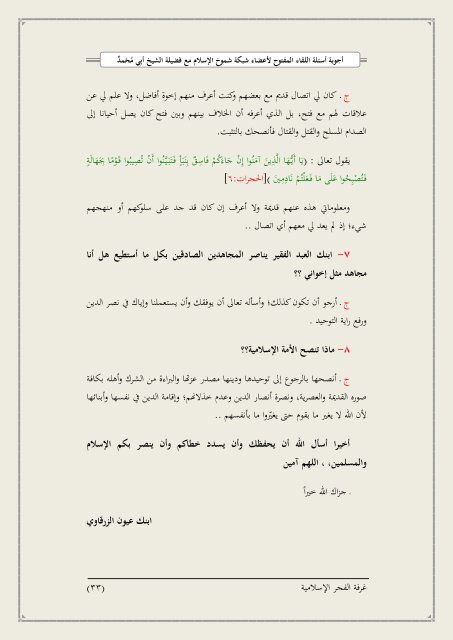 أجوبة أسئلة اللقاء المفتوح لأعضاء شبكة شموخ الإسلام مع فضيلة الشيخ أبي مُحَمدٌ
ج . كان لي اتصال قديم مع بعضهم وكنت أعرف منهم إخوة أفاضل، ولا علم لي عن
علاقات لهم مع فتح، بل الذي أعرفه أن الخلاف بينهم وبين فتح كان يصل أحيانا إلى
الصدام المسلح والقتل والقتال فأنصحك بالتثبت.
يقول تعالى : (يَا أَيُّهَا الَّذِينَ آمَنُوا إِنْ جَاءَكُمْ فَاسِقٌ بِنَبَإٍ فَتَبَيَّنُوا أَنْ تُصِيبُوا قَوْمًا بِجَهَالَةٍ
فَتُصْبِحُوا عَلَى مَا فَعَلْتُمْ نَادِمِينَ )[الحجرات:٦]
ومعلوماتي هذه عنهم قديمة ولا أعرف إن كان قد جد على سلوكهم أو منهجهم
شيء؛ إذ لم يعد لي معهم أي اتصال ..
٧- ابنك العبد الفقير يناصر المجاهدين الصادقين بكل ما أستطيع هل أنا
مجاهد مثل إخواني ؟؟
ج . أرجو أن تكون كذلك؛ وأسأله تعالى أن يوفقك وأن يستعملنا وإياك في نصر الدين
ورفع راية التوحيد .
٨- ماذا تنصح الأمة الإسلامية؟؟
ج . أنصحها بالرجوع إلى توحيدها ودينها مصدر عزتها والبراءة من الشرك وأهله بكافة
صوره القديمة والعصرية، ونصرة أنصار الدين وعدم خذلانهم؛ وإقامة الدين في نفسها وأبنائها
لأن الله لا يغير ما بقوم حتى يغيّروا ما بأنفسهم ..
أخيرا أسأل الله أن يحفظك وأن يسدد خطاكم وأن ينصر بكم الإسلام
والمسلمين، ، اللهم آمين
. جزاك الله خيراً
ابنك عيون الزرقاوي
غرفة الفجر الإسلامية (٣٣)